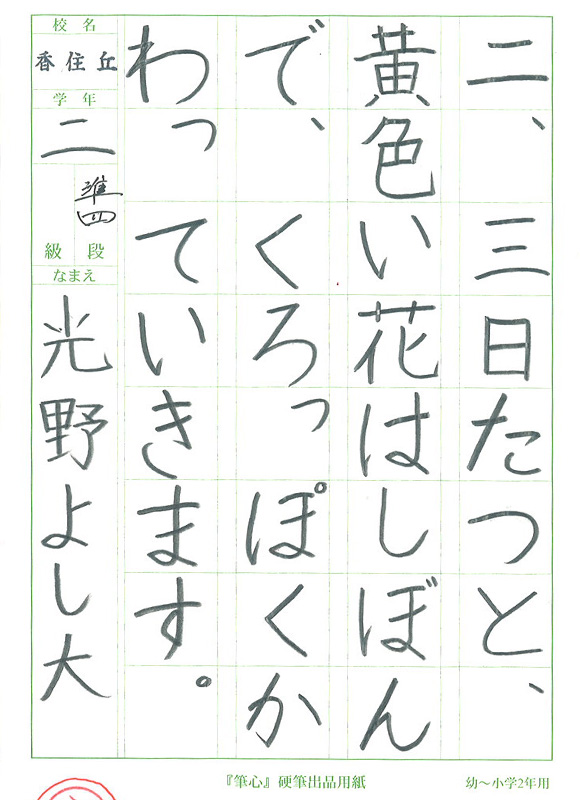 二、三日たつと、
黄色い花はしぼん
で、くろっぽくか
わっていきます。
校名
香住丘
学年
二
準四
級段
なまえ
光野よし大
『筆心』硬筆出品用紙
幼～小学2年用